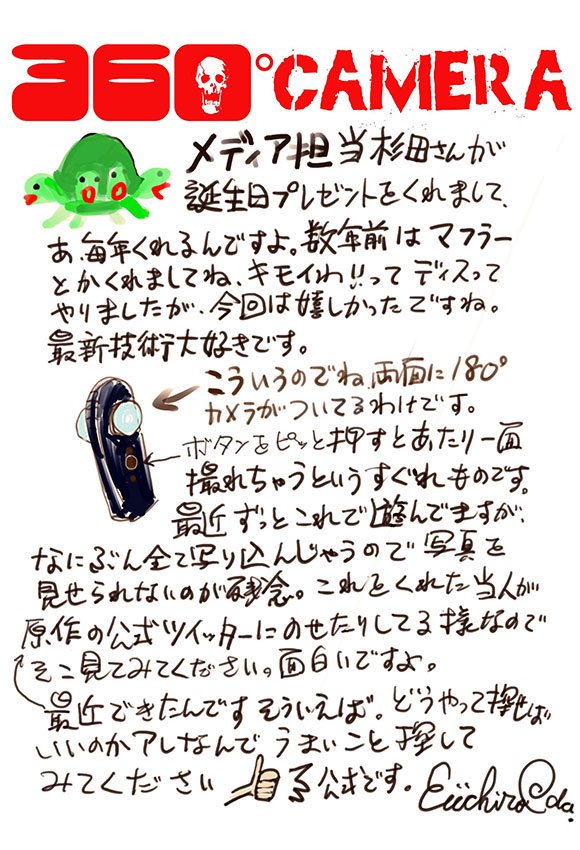 360°CAMERA
メディア担当杉田さんが
誕生日プレゼントをくれまして、
あ、毎年くれるんですよ。数年前はマフラー
とかくれましてね、キモイわ!!ってディスって
やりましたが、今回は嬉しかったですね。
最新技術大好きです。
こういうのでね、両面に180°
カメラがついてるわけです。
ボタンをピッと押すとあたり一面
撮れちゃうというすぐれものです。
最近ずっとこれで遊んでますが、
なにぶん全て写り込んじゃうので写真を
見せられないのが残念。これをくれた当人が
原作の公式ツイッターにのせたりしてる様なので
そこ見てみてください。面白いですよ。
最近できたんですそういえば。どうやって探せば
いいのかアレなんで うまいこと探して
みてください 公式です。 Eiichiro Oda.